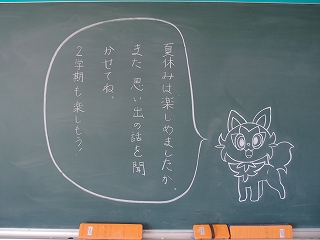 夏休みは楽しめましたか。
また思い出の話を聞
かせてね。
2学期も楽しもう!